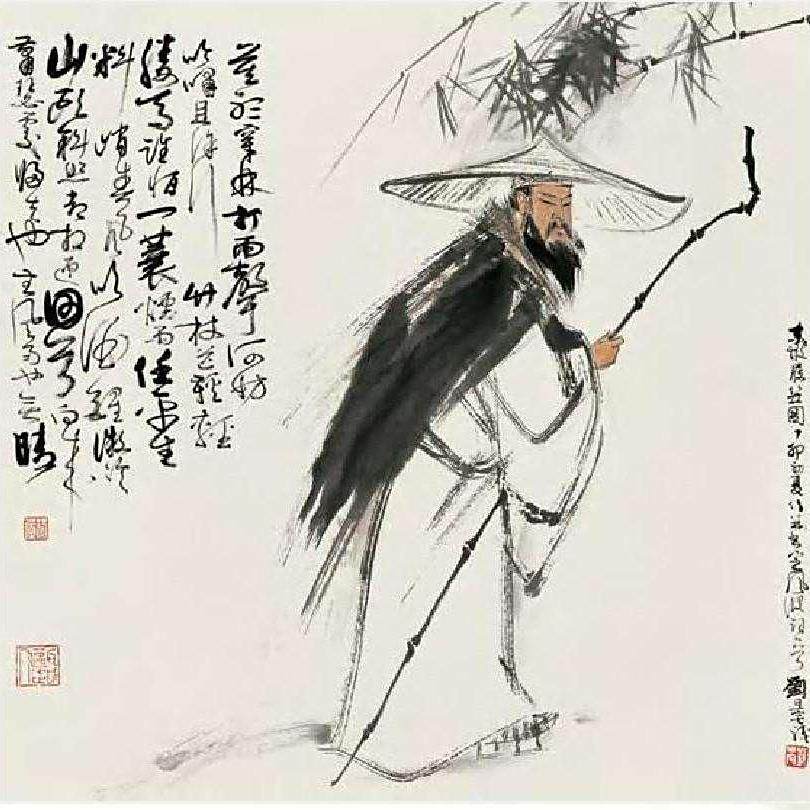 莫听穿林打雨聲何妨
吟嘯且徐行 竹杖芒鞋輕
勝马谁怕一蓑烟雨任平生
料峭春风吹酒醒微冷
山头斜照却相迎回首向来
萧瑟处归去也无风雨也无晴
东坡 图丁卯初夏作并书定风波词 劉